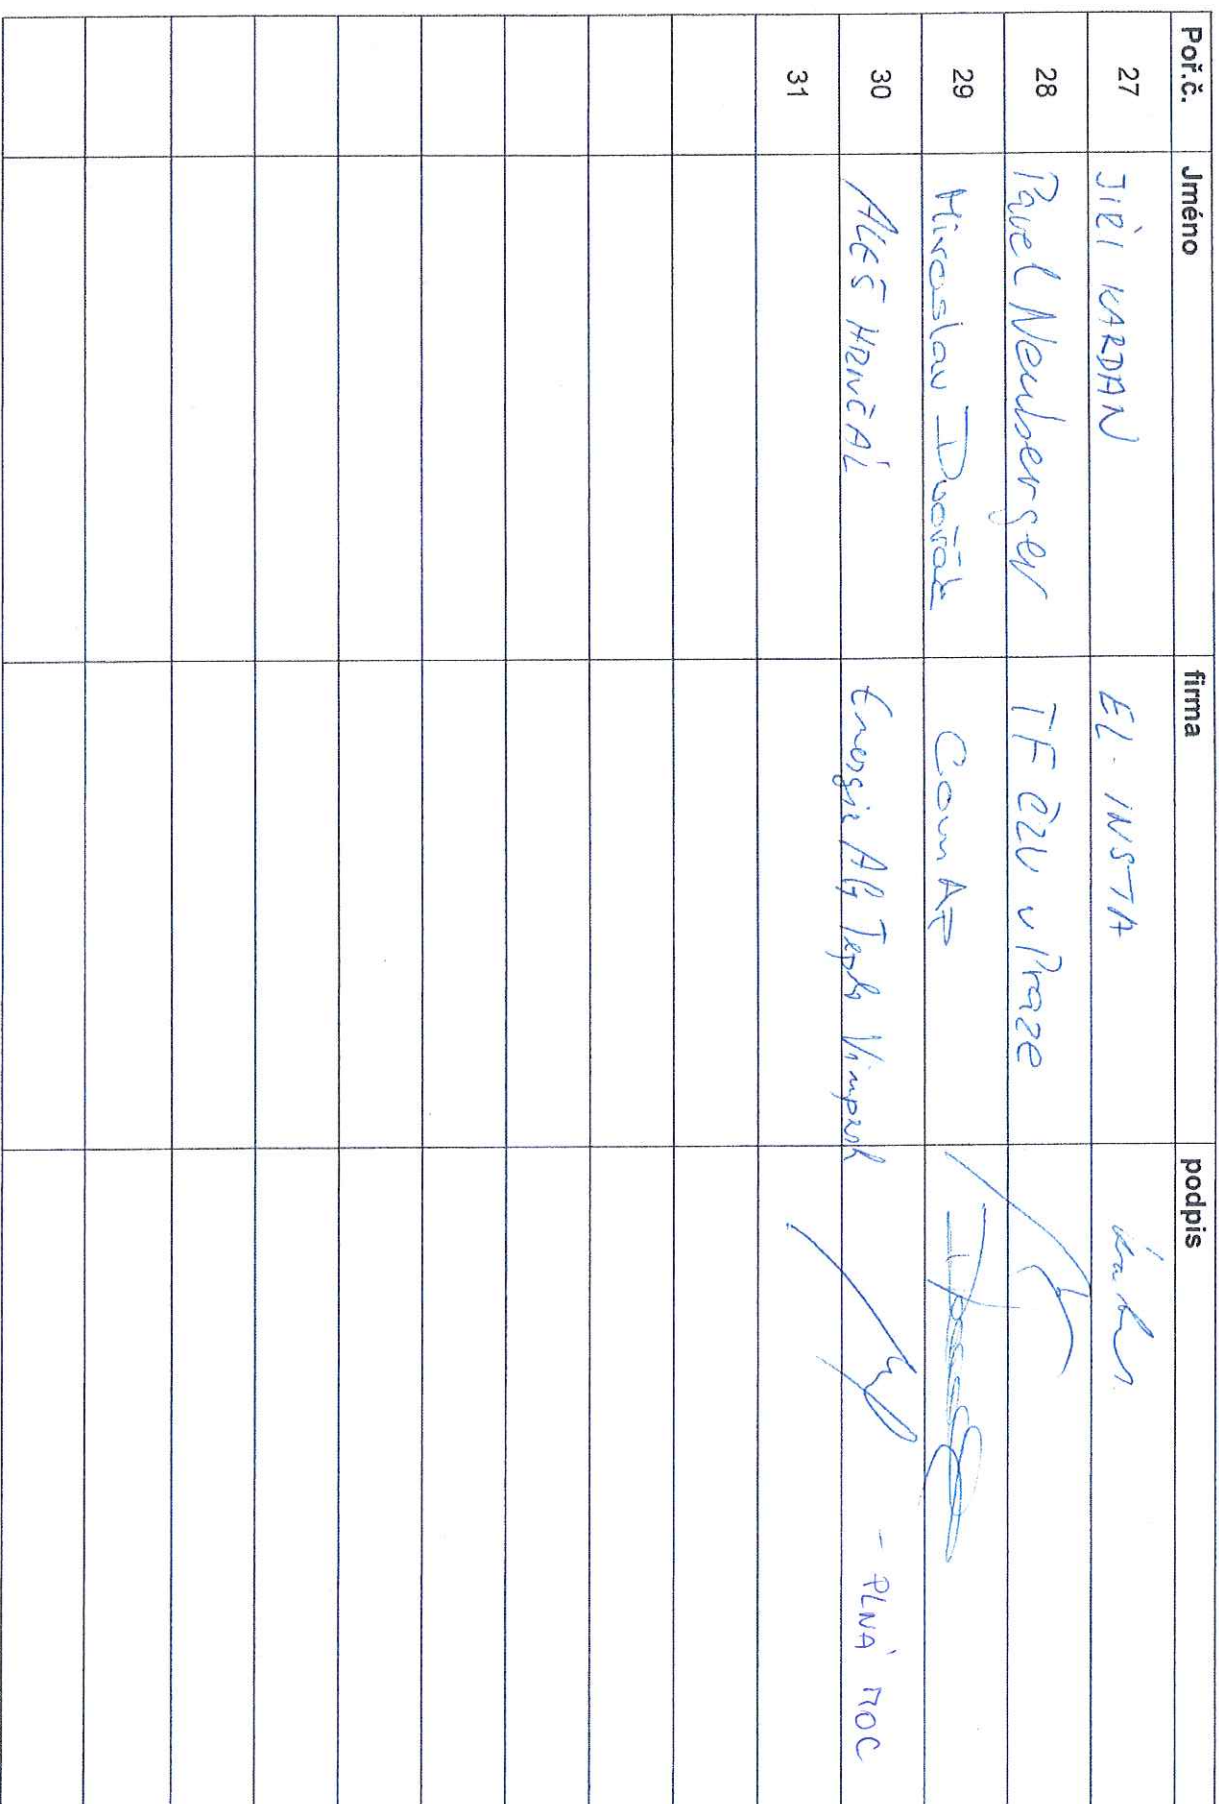 Poř.č. Jméno firma podpis
27 JIŘÍ KARDAN EL. INSTA
28 Pavel Neuberger TF ČZU v Praze
29 Miroslav Dvořák ComAp
30 ALEŠ HRNČÁL Energie AG Teplo Vimperk - PLNÁ MOC
31